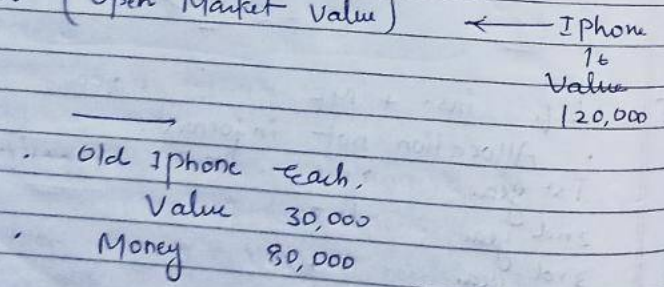 (Open Market Value) ← IPhone
16
Value
120,000
→
. Old Iphone Each.
Value 30,000
. Money 80,000